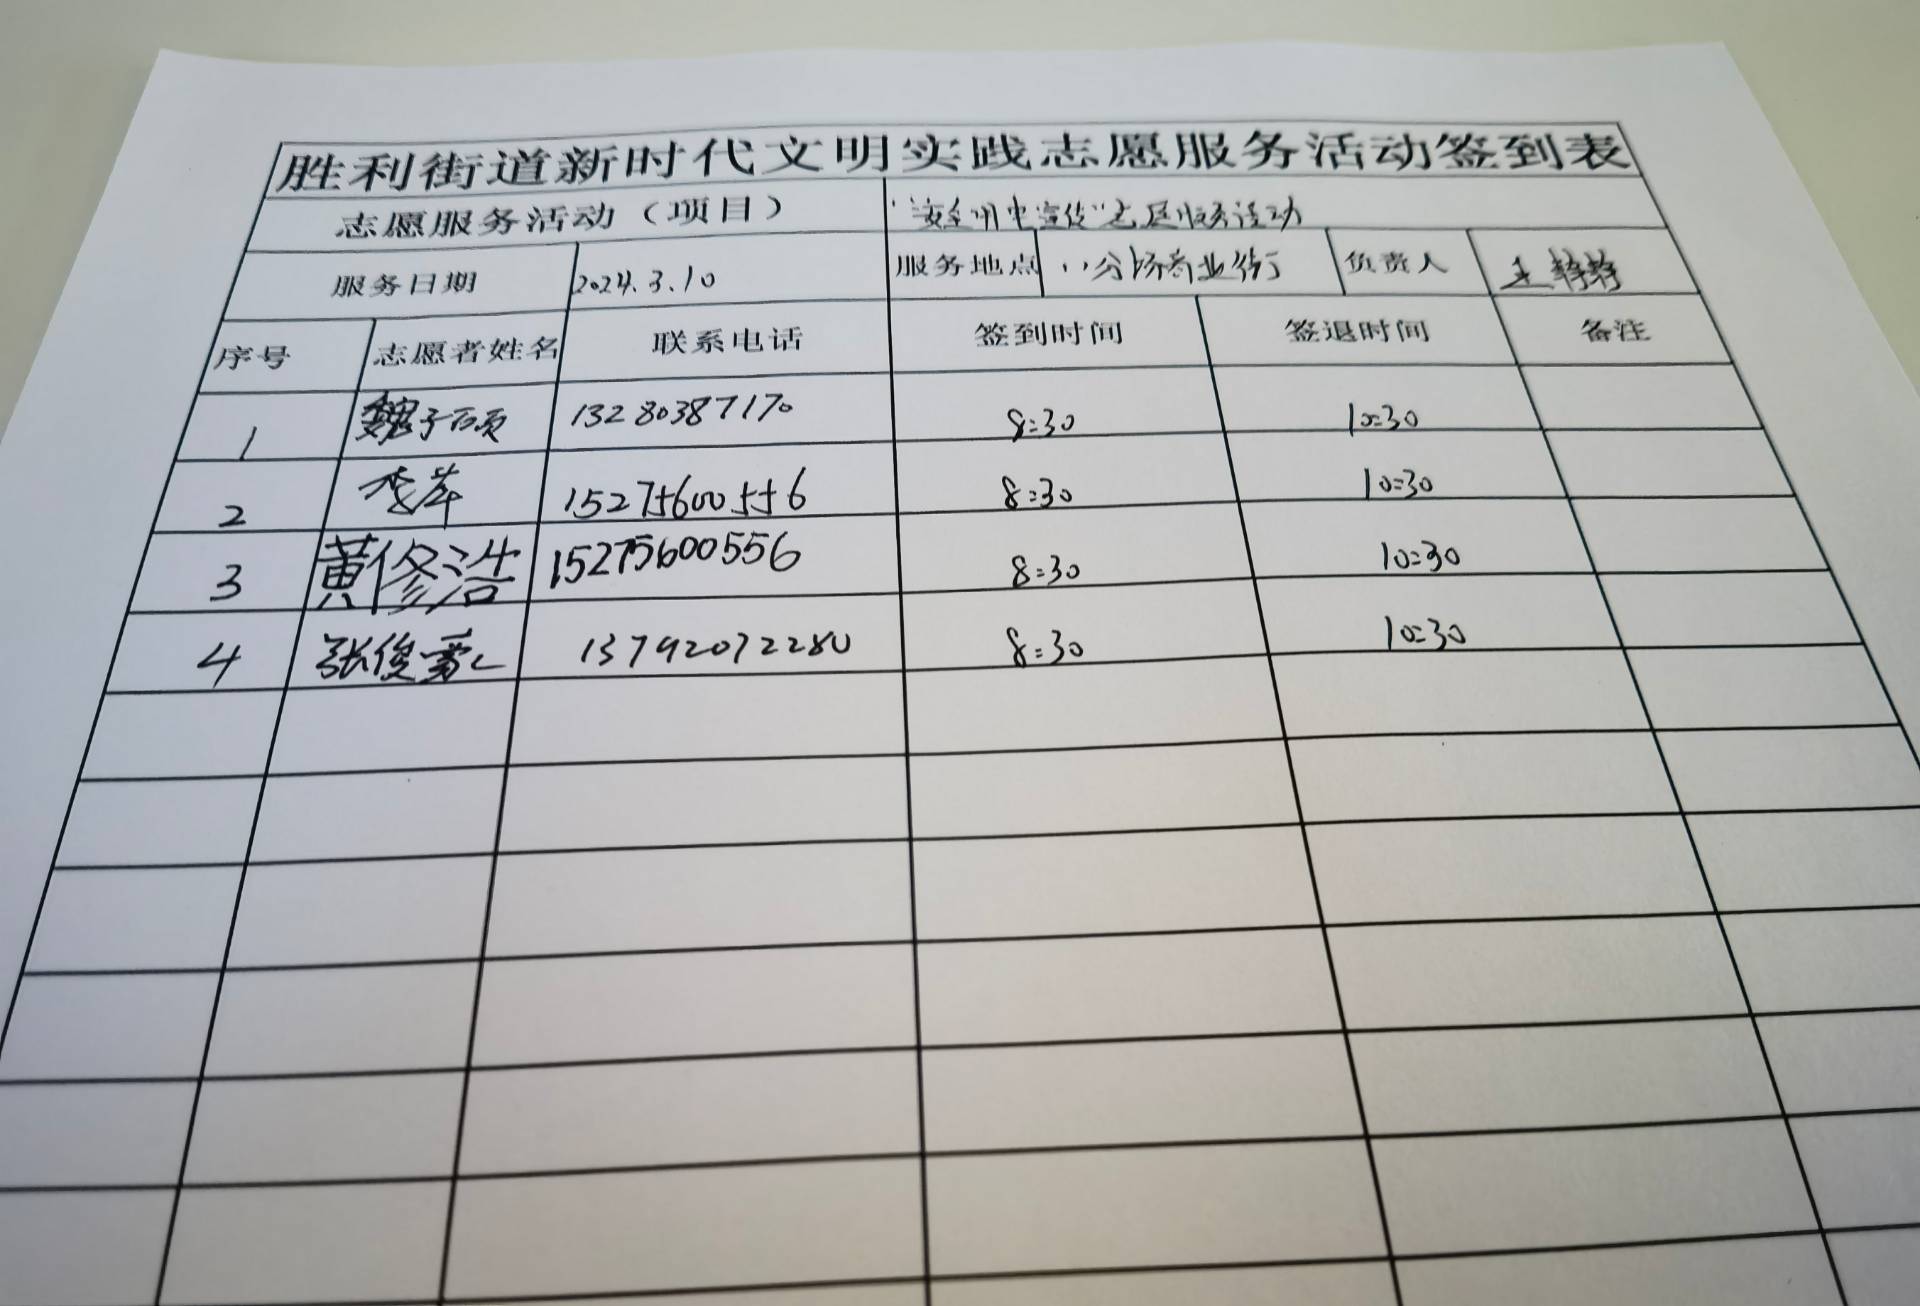 胜利街道新时代文明实践志愿服务活动签到表
志愿服务活动（项目） “安全用电宣传”志愿服务活动
服务日期 2024.3.10 服务地点 八分场商业街 负责人 王静静
序号 志愿者姓名 联系电话 签到时间 签退时间 备注
1 魏子硕 13280387170 8:30 10:30
2 李苹 15275600556 8:30 10:30
3 黄修浩 15275600556 8:30 10:30
4 张俊 13792072280 8:30 10:30